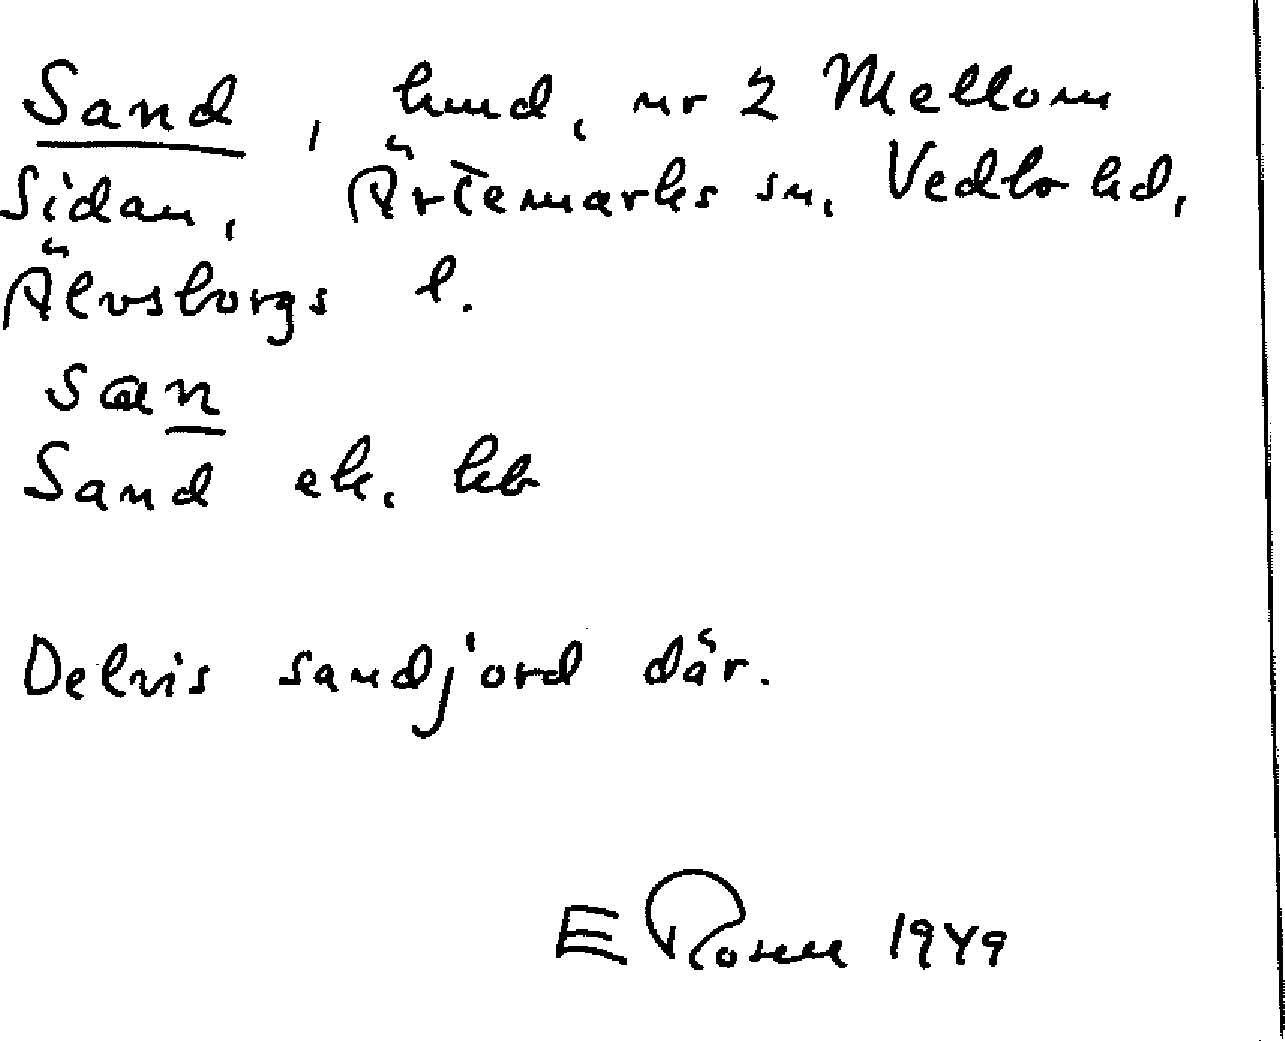 Sand, hmd, nr 2 Mellom
Sidan, Ärtemarks sn, Vedbo hd,
Älvsborgs l.
san
Sand ek. kb
Delvis sandjord där.
E Rosell 1949